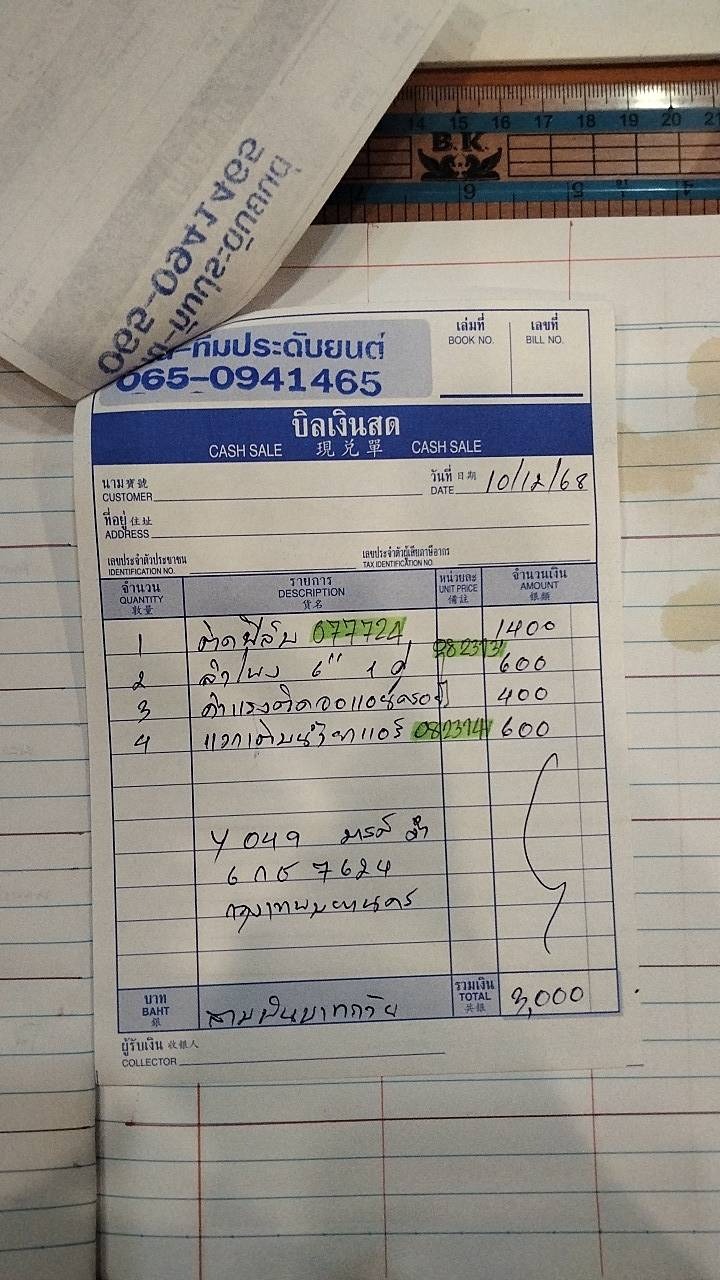 14 15 16 17 18 19 20 21
B.K.
065-0941465
ทีมประดับยนต์
-ทีมประดับยนต์
065-0941465
เล่มที่ เลขที่
BOOK NO. BILL NO.
บิลเงินสด
CASH SALE 現兌單 CASH SALE
นาม 寶號
CUSTOMER
วันที่ 日期
DATE 10/12/68
ที่อยู่ 住址
ADDRESS
เลขประจำตัวประชาชน เลขประจำตัวผู้เสียภาษีอากร
IDENTIFICATION NO. TAX IDENTIFICATION NO.
จำนวน รายการ หน่วยละ จำนวนเงิน
QUANTITY DESCRIPTION UNIT PRICE AMOUNT
數量 貨名 備註 銀額
1 ติดฟิล์ม 077724 1400
2 ลำโพง 6" 1 คู่ 082313 600
3 ค่าแรงติดจอแอนดรอย 400
4 600
049 ดำ
6 กธ 7624
กรุงเทพมหานคร
บาท รวมเงิน
BAHT สามพันบาทถ้วน TOTAL 3,000
銀 共銀
ผู้รับเงิน 收銀人
COLLECTOR